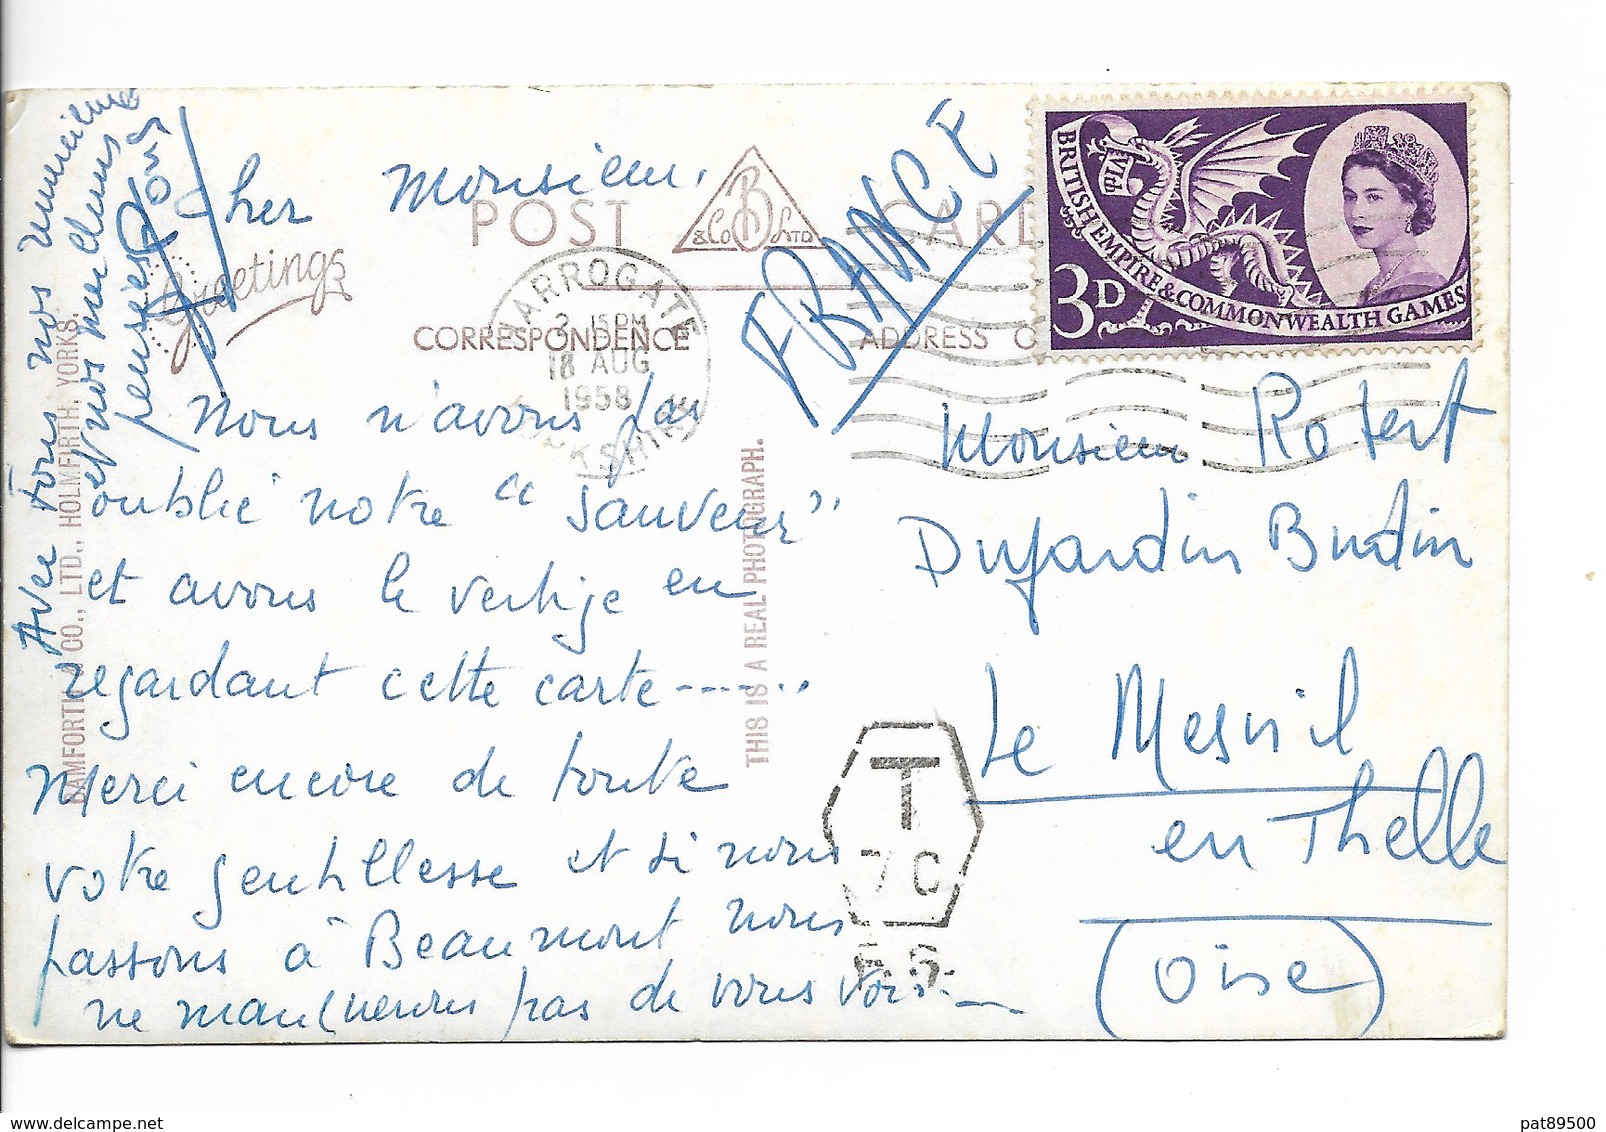 Cher Monsieur,
Nous n'avons pas
oublié notre "Sauveur"
et avons le vertige en
regardant cette carte------..
Merci encore de toute
votre gentillesse et si nous
passons à Beaumont nous
ne manquerons pas de vous voir.-
Avec tous nos
et nos meilleurs
pensées
POST CARD
B & Co LTD
Greetings
CORRESPONDENCE
ADDRESS O
HARROGATE
2 15PM
18 AUG
1958
BAMFORTH & CO., LTD., HOLMFIRTH, YORKS.
THIS IS A REAL PHOTOGRAPH.
FRANCE
BRITISH EMPIRE & COMMONWEALTH GAMES
3D
Monsieur Robert
Dujardin Budin
Le Mesnil
en Thelle
(Oise)
T
7 C
F.S.
delcampe.net
pat89500